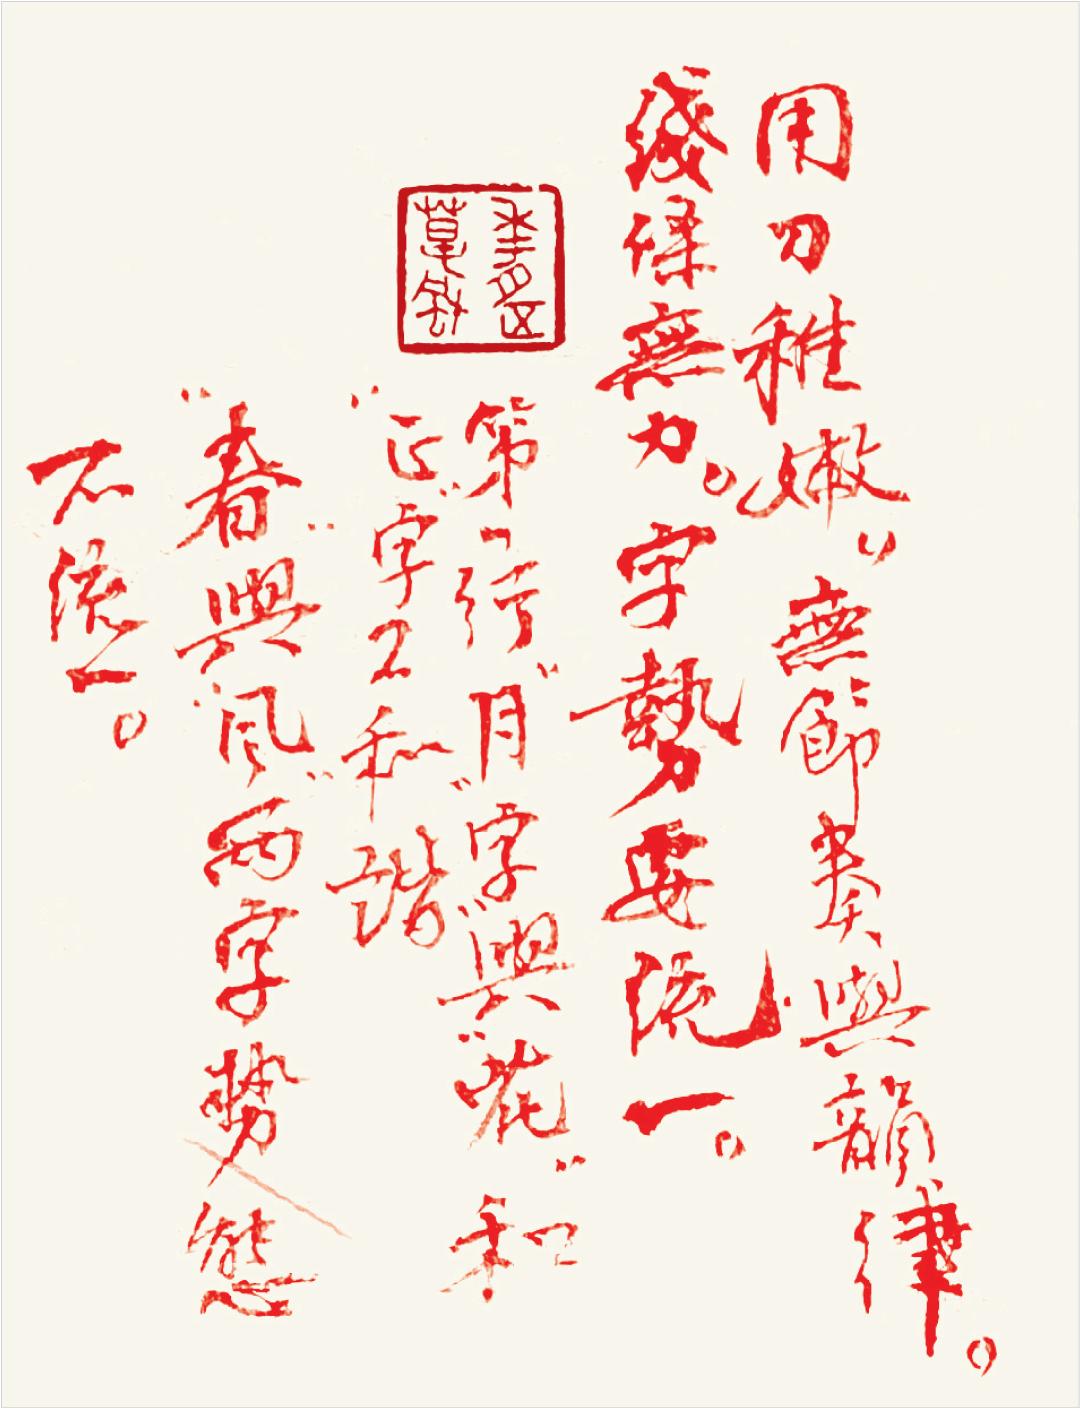 用刀稚嫩，無節奏與韻律。
綫條無力。字勢要統一。
第一行"月"字與"花"和
"正"字不和諧
"春"與"風"兩字勢態
不統一。